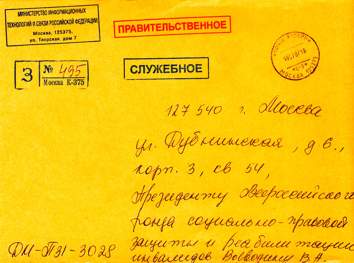 МИНИСТЕРСТВО ИНФОРМАЦИОННЫХ
ТЕХНОЛОГИЙ И СВЯЗИ РОССИЙСКОЙ ФЕДЕРАЦИИ
Москва, 125375,
ул. Тверская дом 7
ПРАВИТЕЛЬСТВЕННОЕ
З
№ 495
Москва К-375
СЛУЖЕБНОЕ
127540 г. Москва
ул. Дубнинская, д 6,
корп. 3, кв 54,
Президенту Всероссийского
фонда социально-правовой
защиты и реабилитации
инвалидов В.А.
ДМ-П31-3028